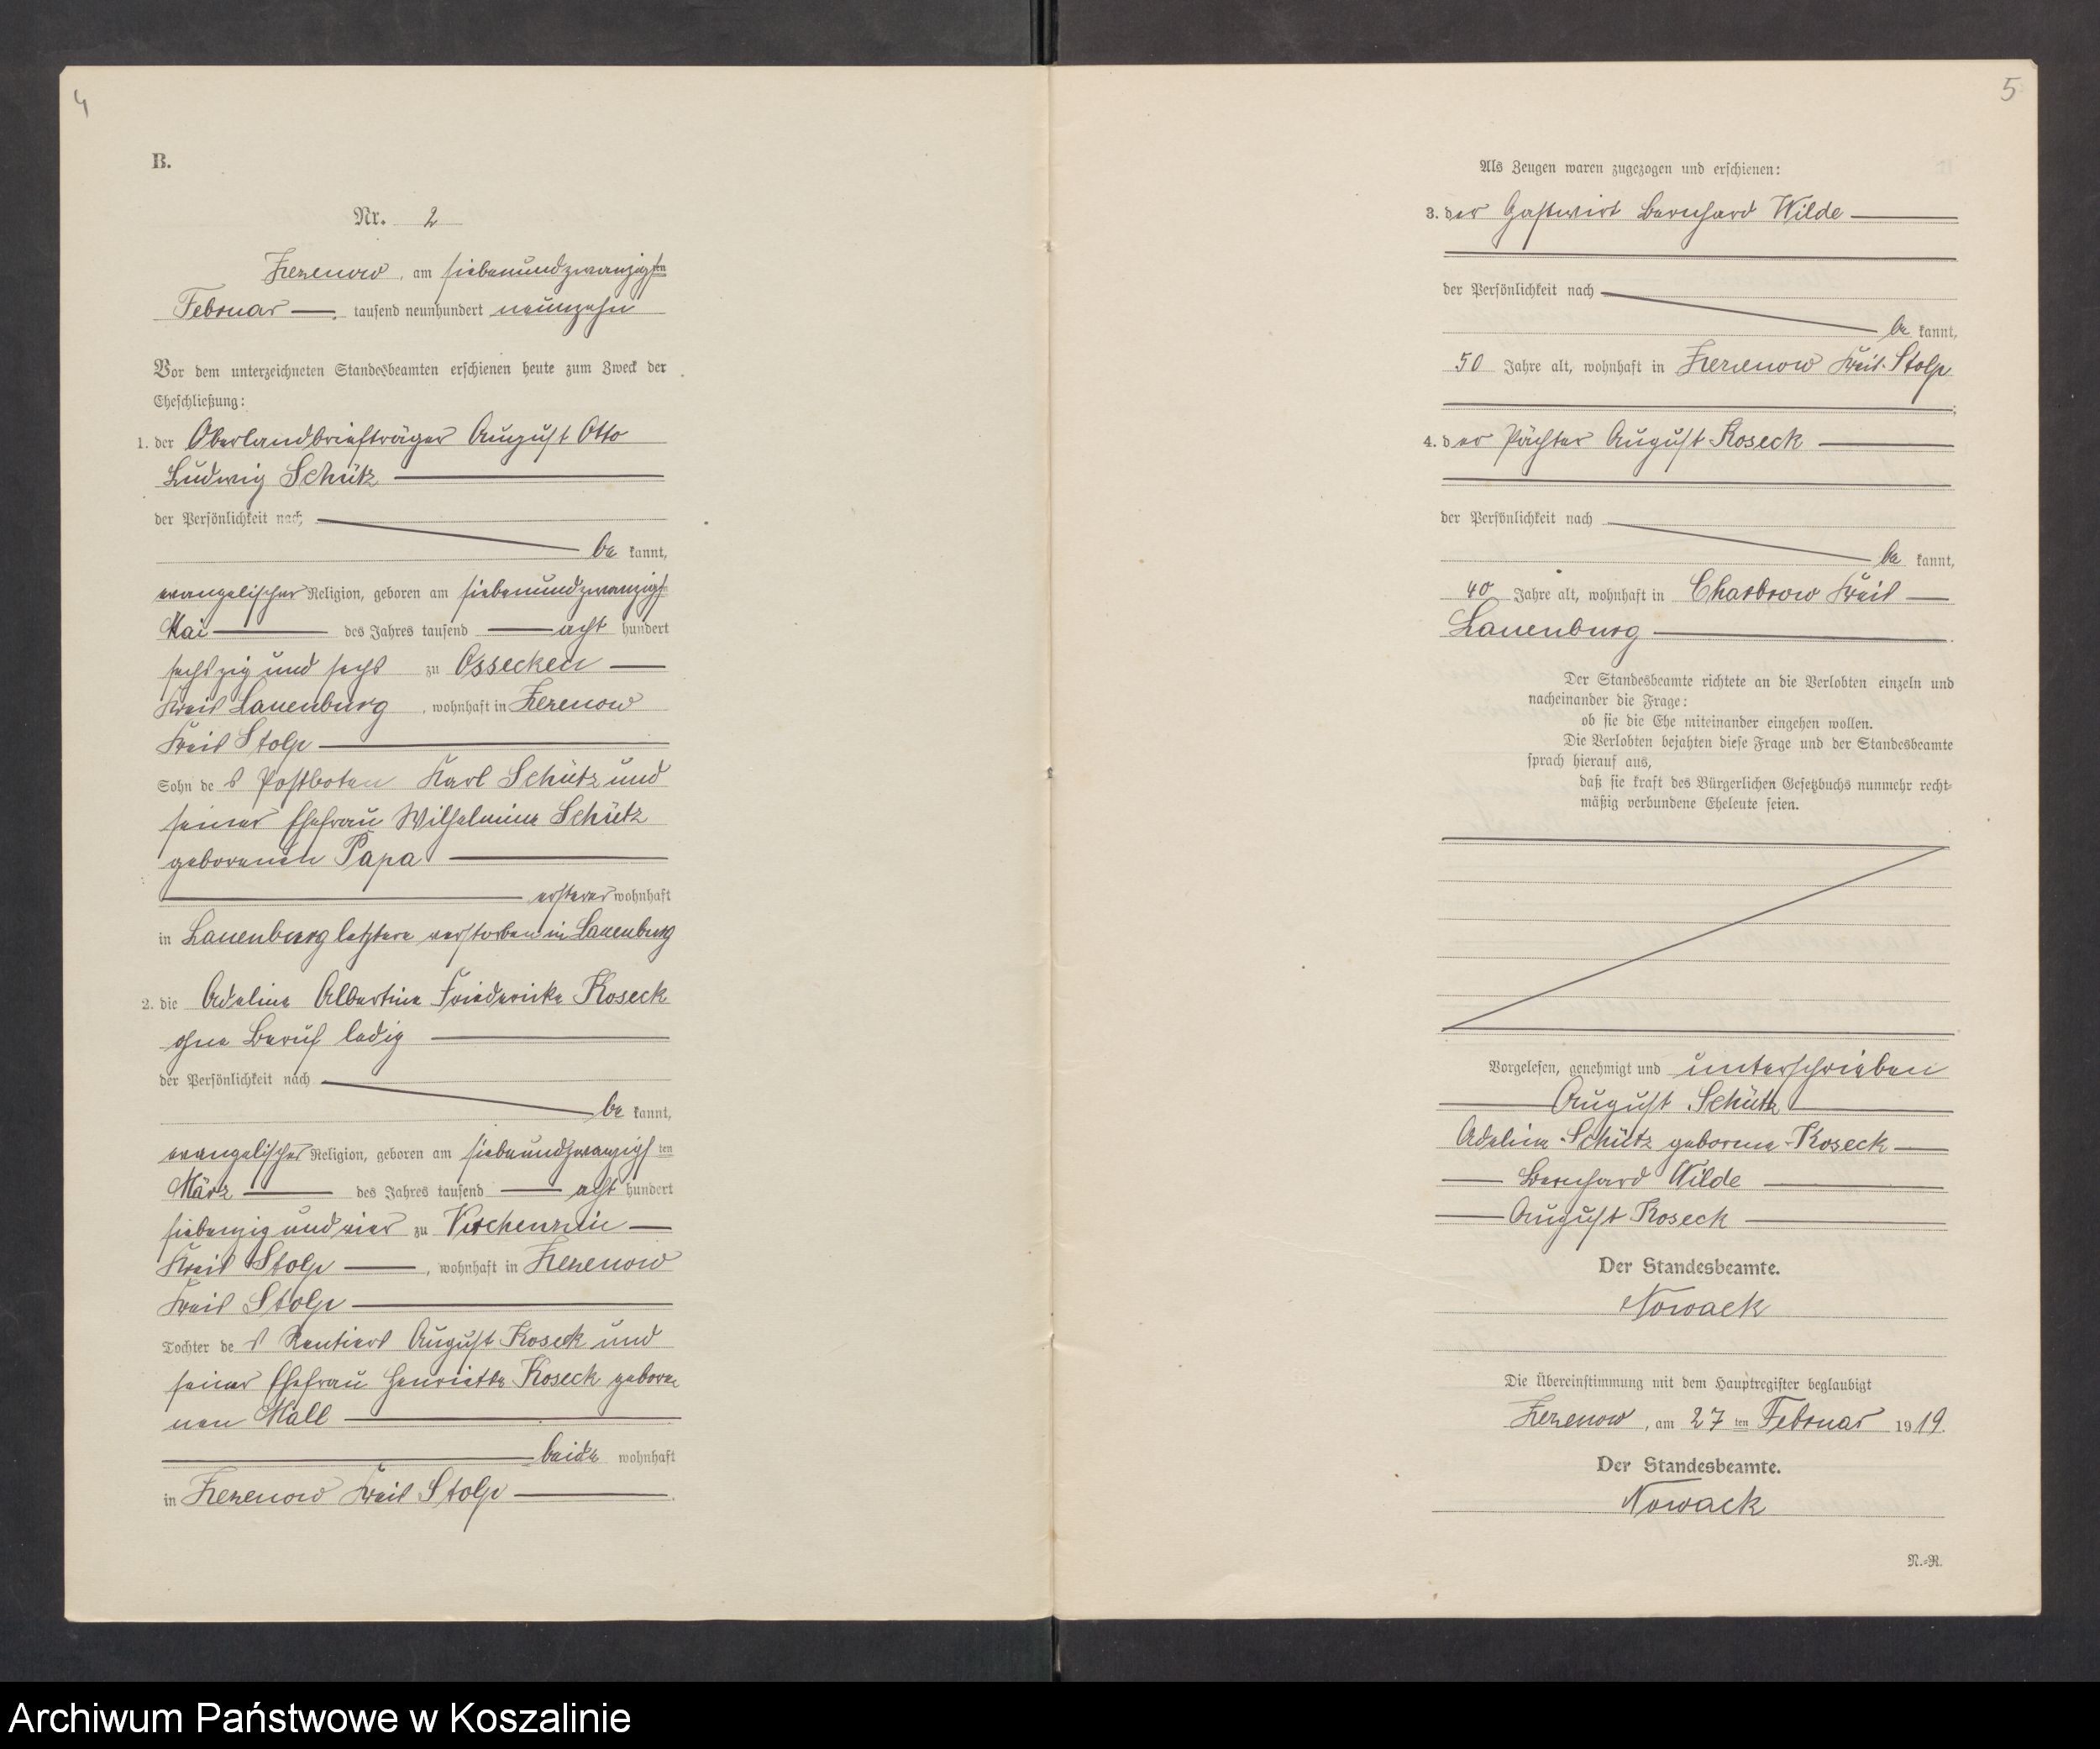 4
B.
Nr. 2
Zezenow, am siebenundzwanzigsten
Februar tausend neunhundert neunzehn
Vor dem unterzeichneten Standesbeamten erschienen heute zum Zweck der
Eheschließung:
1. der Oberlandbriefträger August Otto
Ludwig Schütz
der Persönlichkeit nach
be kannt,
evangelischer Religion, geboren am siebenundzwanzigst
Mai des Jahres tausend acht hundert
sechszig und sechs zu Ossecken
Kreis Lauenburg, wohnhaft in Zezenow
Kreis Stolp
Sohn des Postboten Karl Schütz und
seiner Ehefrau Wilhelmine Schütz
geborenen Papa
ersterer wohnhaft
in Lauenburg letztere verstorben in Lauenburg
2. die Adeline Albertine Friedericke Koseck
ohne Beruf ledig
der Persönlichkeit nach
be kannt,
evangelischer Religion, geboren am siebenundzwanzigsten
März des Jahres tausend acht hundert
siebenzig und vier zu
Kreis Stolp, wohnhaft in Zezenow
Kreis Stolp
Tochter des Rentiers August Koseck und
seiner Ehefrau Henriette Koseck gebore
nen Mall
beide wohnhaft
in Zezenow Kreis Stolp
5
Als Zeugen waren zugezogen und erschienen:
3. der Gastwirt Bernhard Wilde
der Persönlichkeit nach
be kannt,
50 Jahre alt, wohnhaft in Zezenow Kreis Stolp
4. der Pächter August Koseck
der Persönlichkeit nach
be kannt,
40 Jahre alt, wohnhaft in Charbrow Kreis
Lauenburg
Der Standesbeamte richtete an die Verlobten einzeln und
nacheinander die Frage:
ob sie die Ehe miteinander eingehen wollen.
Die Verlobten bejahten diese Frage und der Standesbeamte
sprach hierauf aus,
daß sie kraft des Bürgerlichen Gesetzbuchs nunmehr recht-
mäßig verbundene Eheleute seien.
Vorgelesen, genehmigt und unterschrieben
August Schütz
Adeline Schütz geborene Koseck
Bernhard Wilde
August Koseck
Der Standesbeamte.
Nowack
Die Übereinstimmung mit dem Hauptregister beglaubigt
Zezenow, am 27ten Februar 1919.
Der Standesbeamte.
Nowack
N.-R.
Archiwum Państwowe w Koszalinie